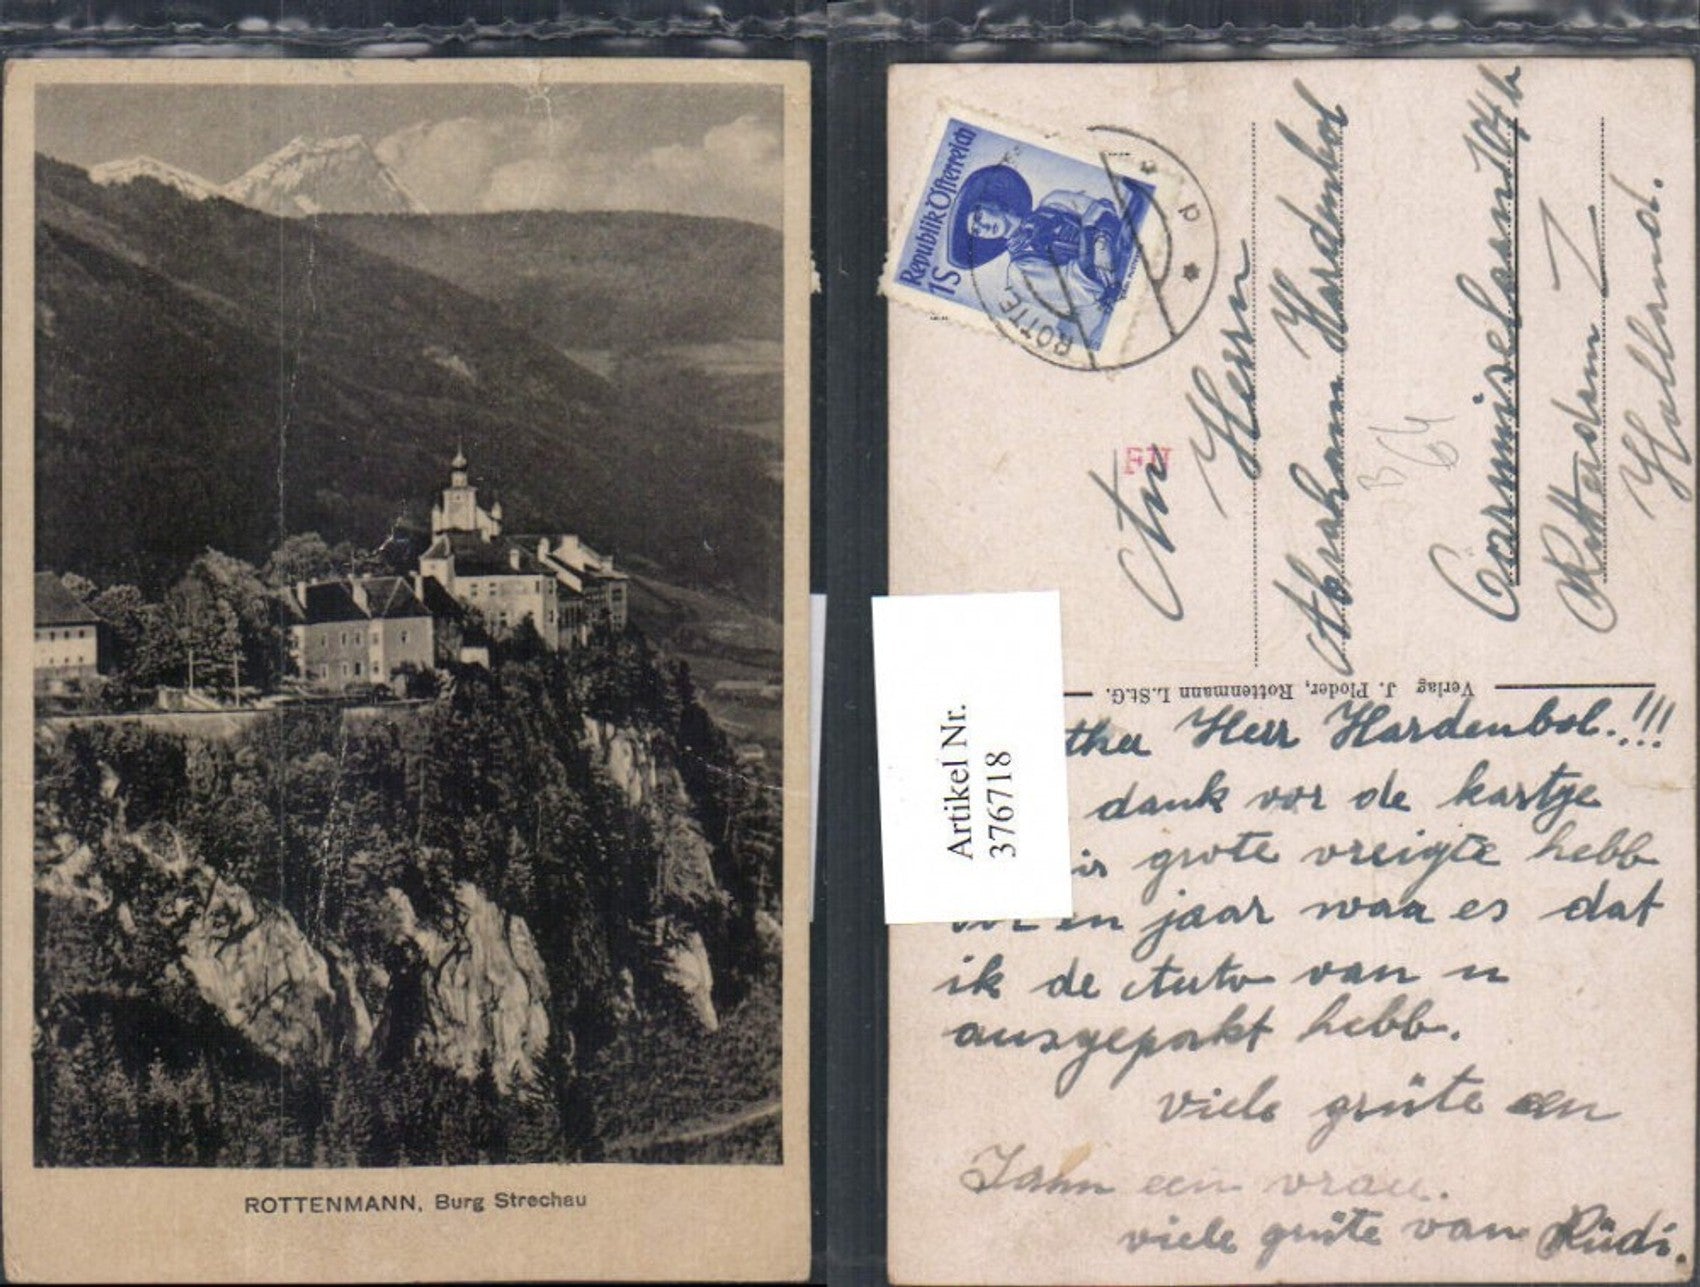 ROTTENMANN, Burg Strechau
Republik Österreich
1S
ROTTE
P
FN
An
Herrn
Abraham Hardenbol
B
64
Carnisselaan 104 b
Rotterdam Z
Holland.
Verlag J. Ploder, Rottenmann L.St.G.
Artikel Nr.
376718
Herr Hardenbol.!!!
dank vor de kartje
grote vreigte hebb
en jaar waa es dat
ik de Auto van u
ausgepakt hebb.
viele grüte een
Jahn een vrau.
viele grüte van Rüdi.